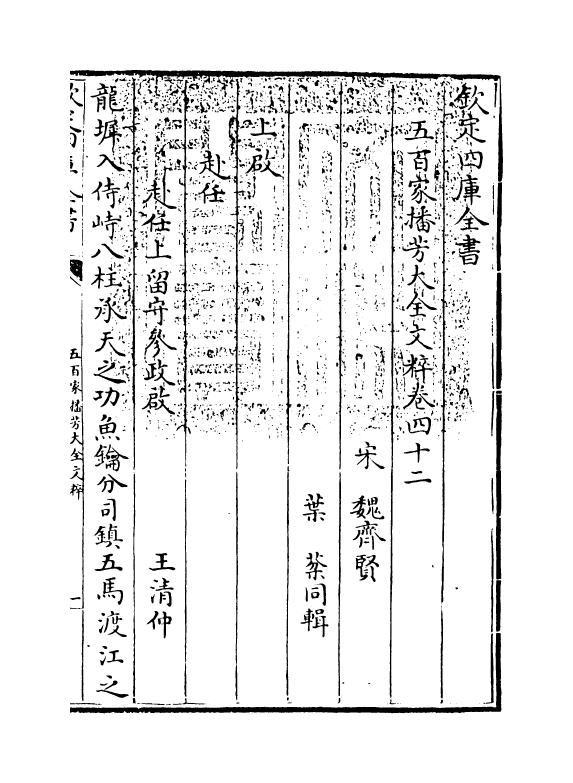 欽定四庫全書
五百家播芳大全文粹卷四十二
宋 魏齊賢
葉棻同輯
上啟
赴任
赴任上留守參政啟 王清仲
龍墀入侍峙八柱承天之功魚鑰分司鎮五馬渡江之
五百家播芳大全文粹
一